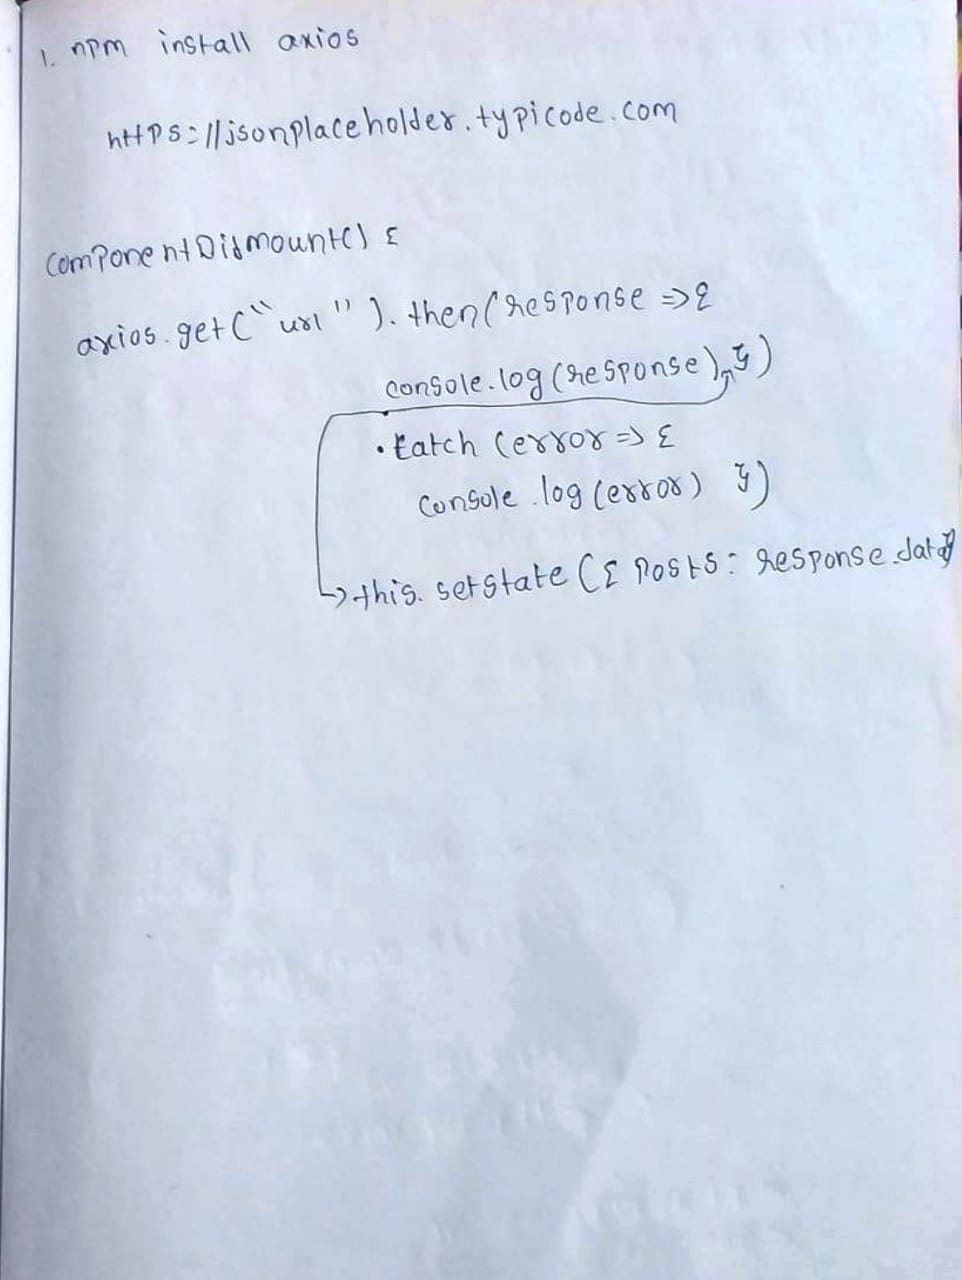 1. npm install axios
https://jsonplaceholder.typicode.com
componentDidMount() {
axios.get("url").then(response => {
console.log(response), })
.catch (error => {
console.log(error) })
→ this.setstate ({ Posts: response.data}